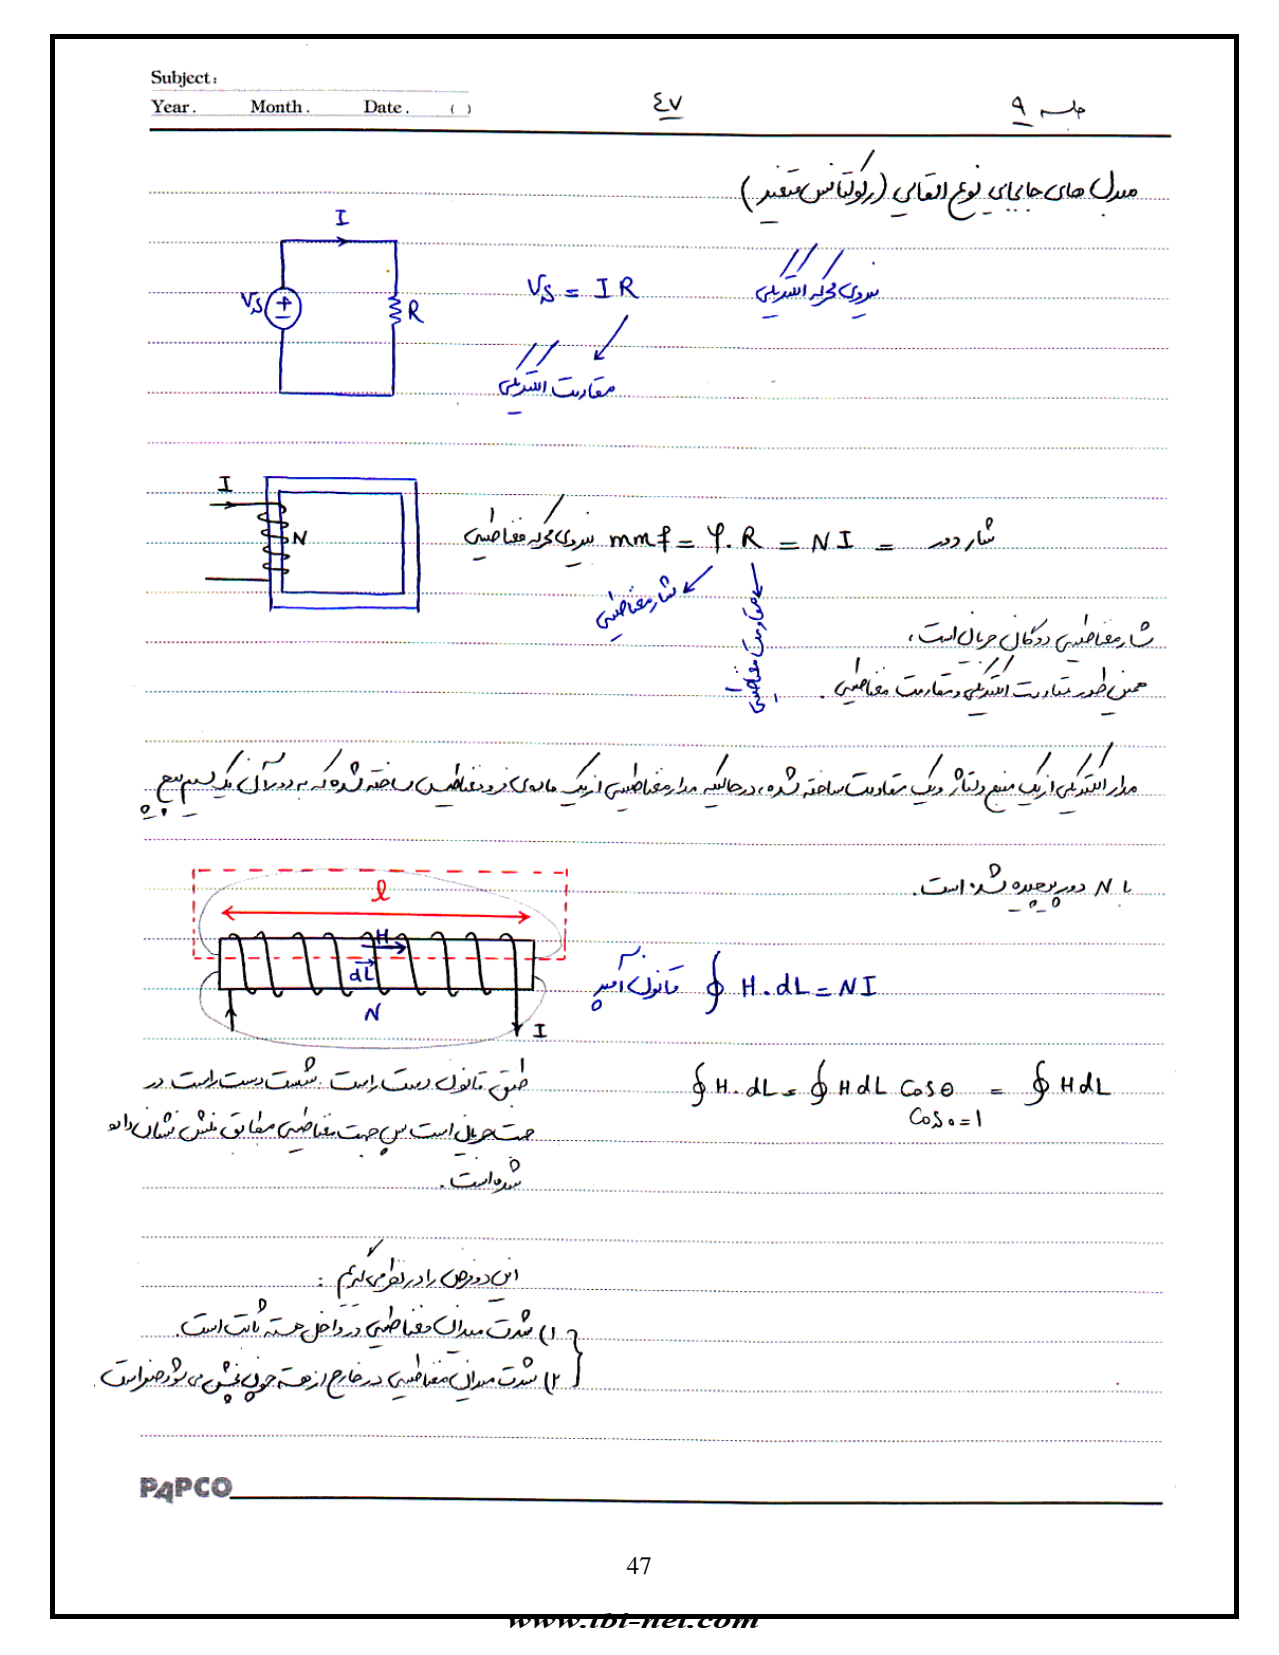 Subject:
Year. Month. Date. ( )
٤٧
جلسه ۹
مبدل های جابجایی نوع القایی (رلوکتانس متغیر)
I
Vs
R
Vs = I R
نیروی محرکه الکتریکی
مقاومت الکتریکی
I
N
شار دور = mmf = φ.R = NI نیروی محرکه مغناطیسی
شار مغناطیسی
مقاومت مغناطیسی
شار مغناطیسی دوگان جریان است،
همین طور مقاومت الکتریکی و مقاومت مغناطیسی.
مدار الکتریکی از یک منبع ولتاژ و یک مقاومت ساخته شده، در حالیکه مدار مغناطیسی از یک ماده‌ی فرومغناطیس ساخته شده که به دور آن یک سیم پیچ
با N دور پیچیده شده است.
l
H
dL
N
I
قانون آمپر ∮ H.dL = NI
∮ H.dL = ∮ HdL Cosθ = ∮ HdL
Cos0=1
طبق قانون دست راست شست دست راست در
جهت جریان است پس جهت مغناطیسی مطابق نقش نشان داده
شده است.
این دو فرض را در نظر می گیریم :
۱) شدت میدان مغناطیسی در داخل هسته ثابت است.
۲) شدت میدان مغناطیسی در خارج از هسته چون پخش می شود صفر است.
PAPCO
47